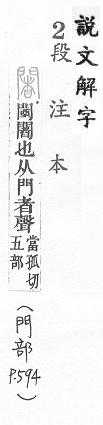 說文解字
2段注本
闍 闉闍也从門者聲 當孤切
五部
(門部
P.594)